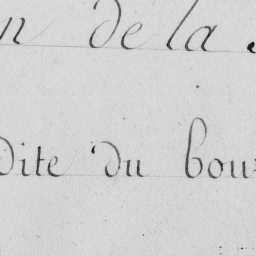 n de la
dite du bou